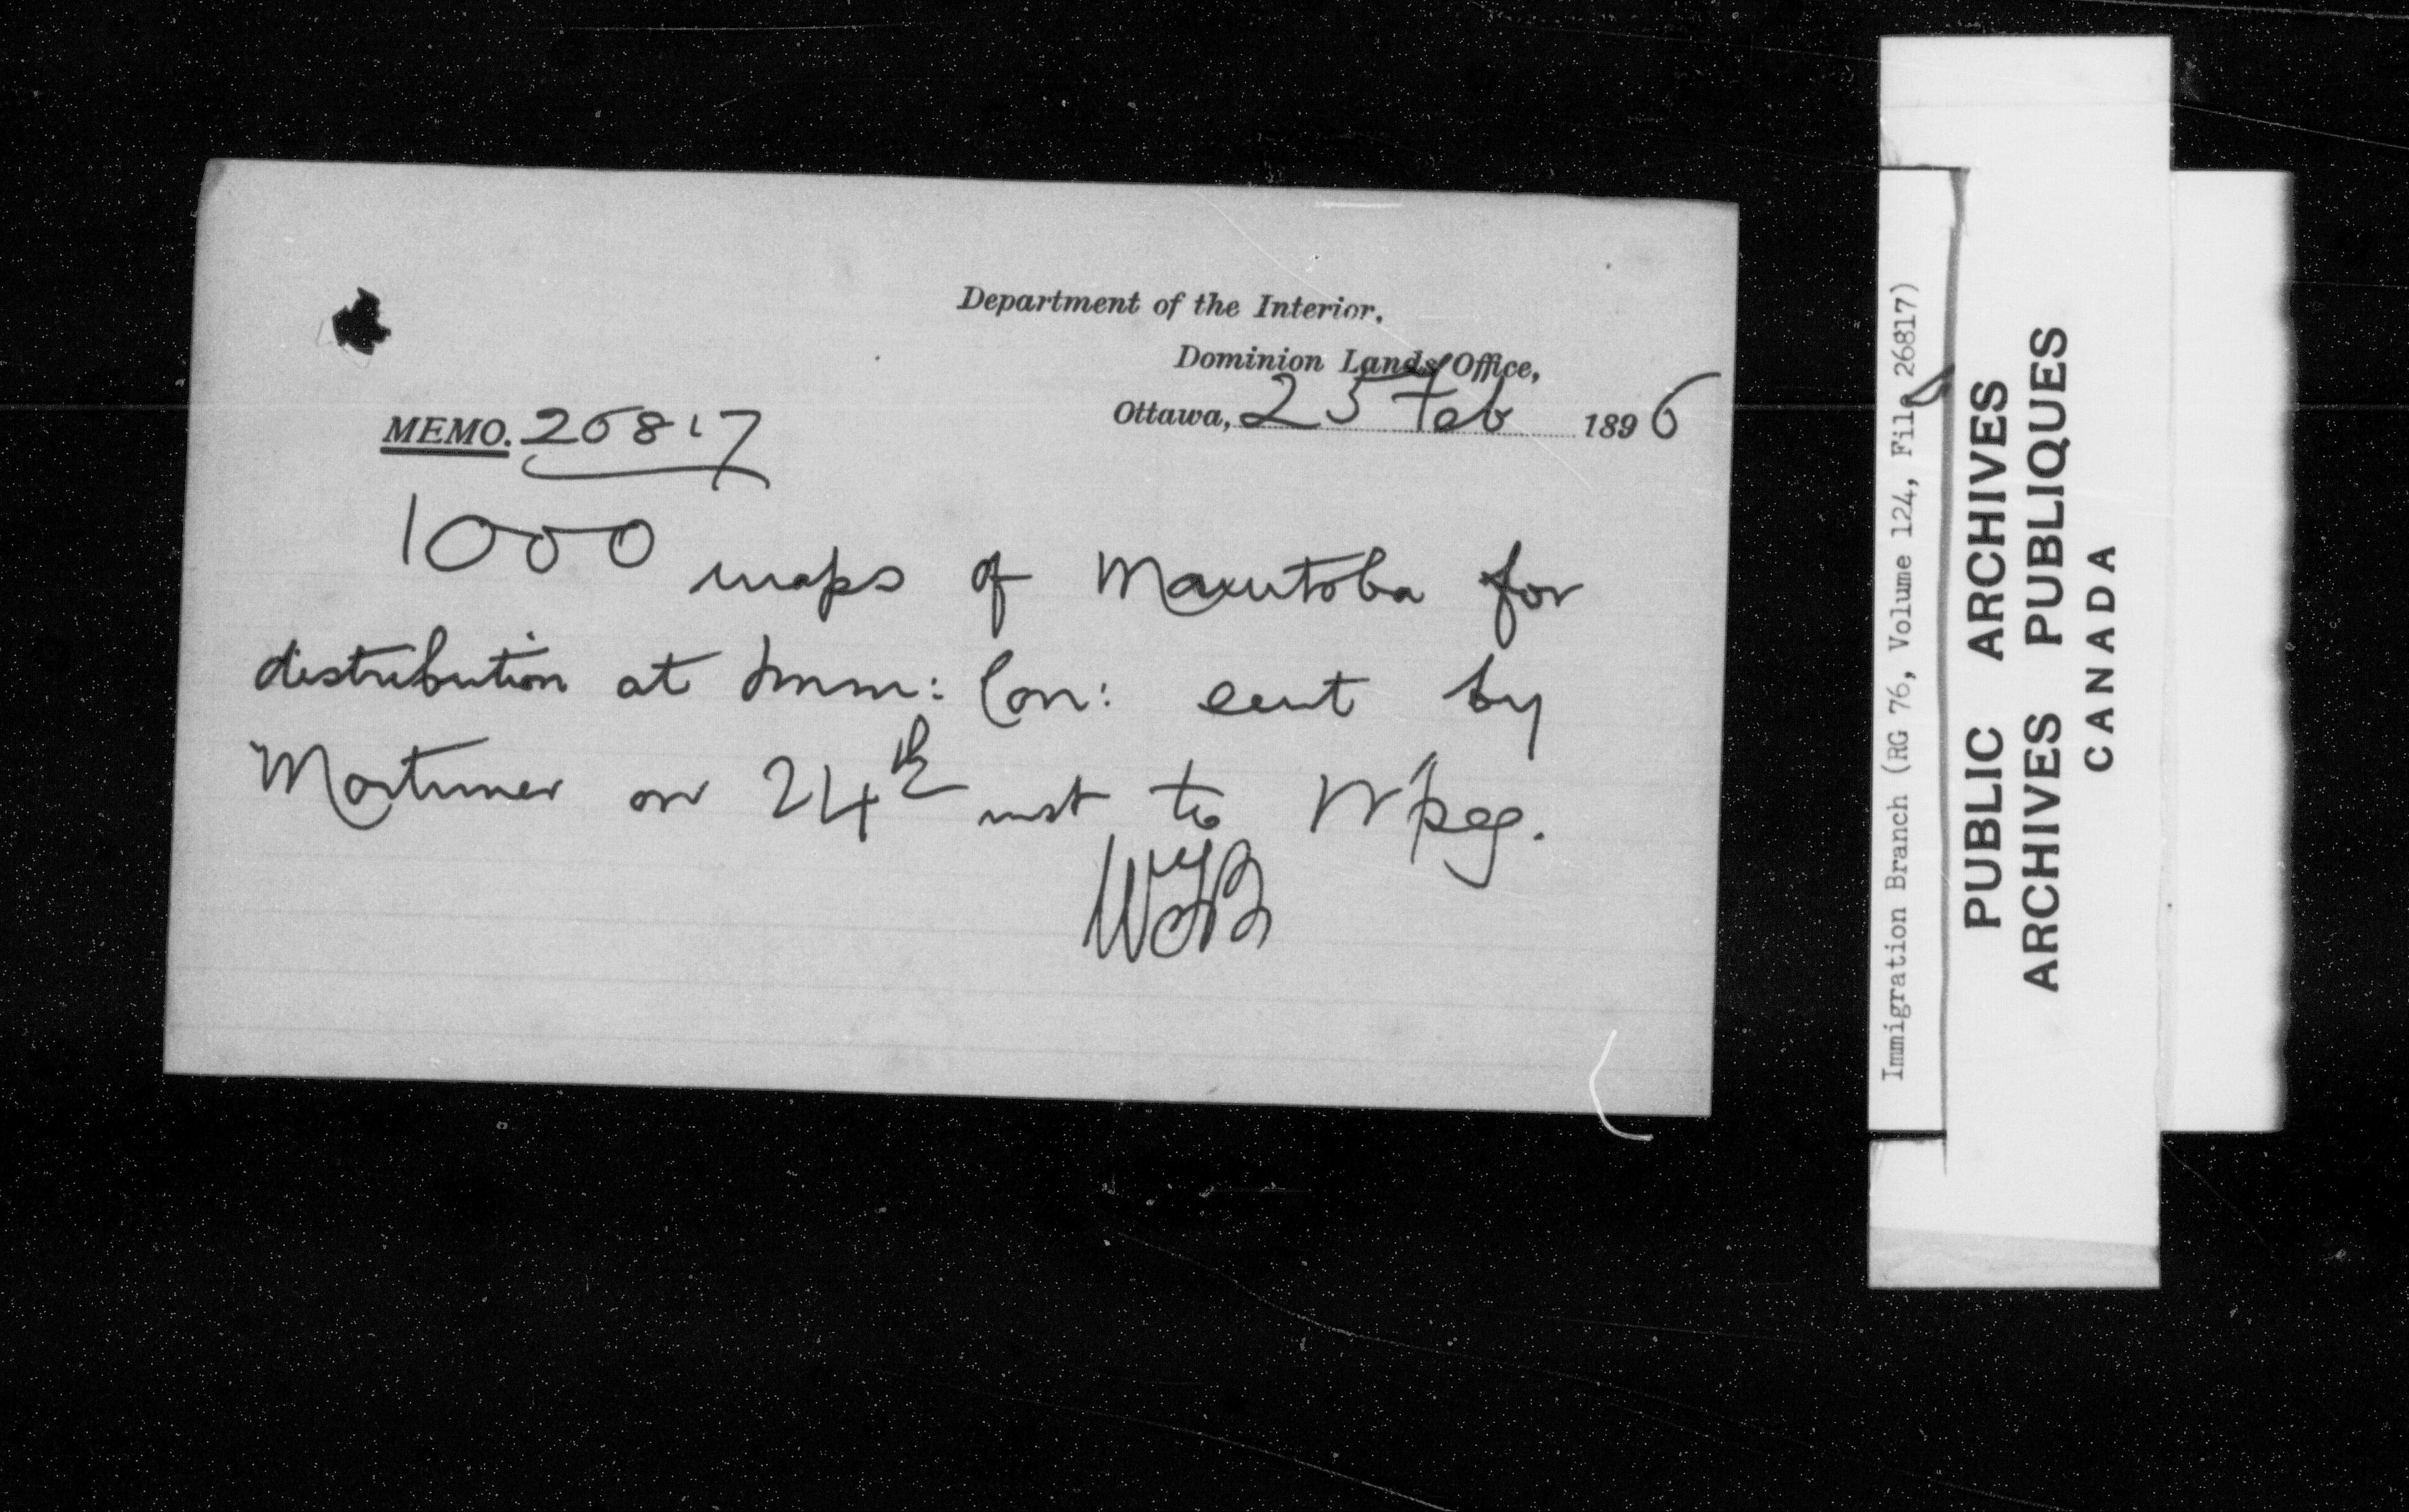 Department of the Interior,
Dominion Lands Office,
Ottawa, 25 Feb 1896
MEMO. 26817
1000 maps of Manitoba for
distribution at Imm: Con: sent by
Mortimer on 24th inst to W'peg.
Immigration Branch (RG 76, Volume 124, File 26817)
PUBLIC ARCHIVES
ARCHIVES PUBLIQUES
CANADA